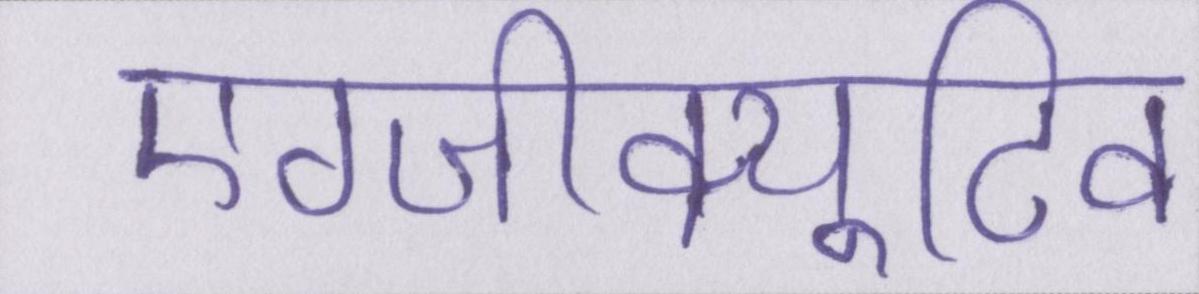 एग्जीक्यूटिव